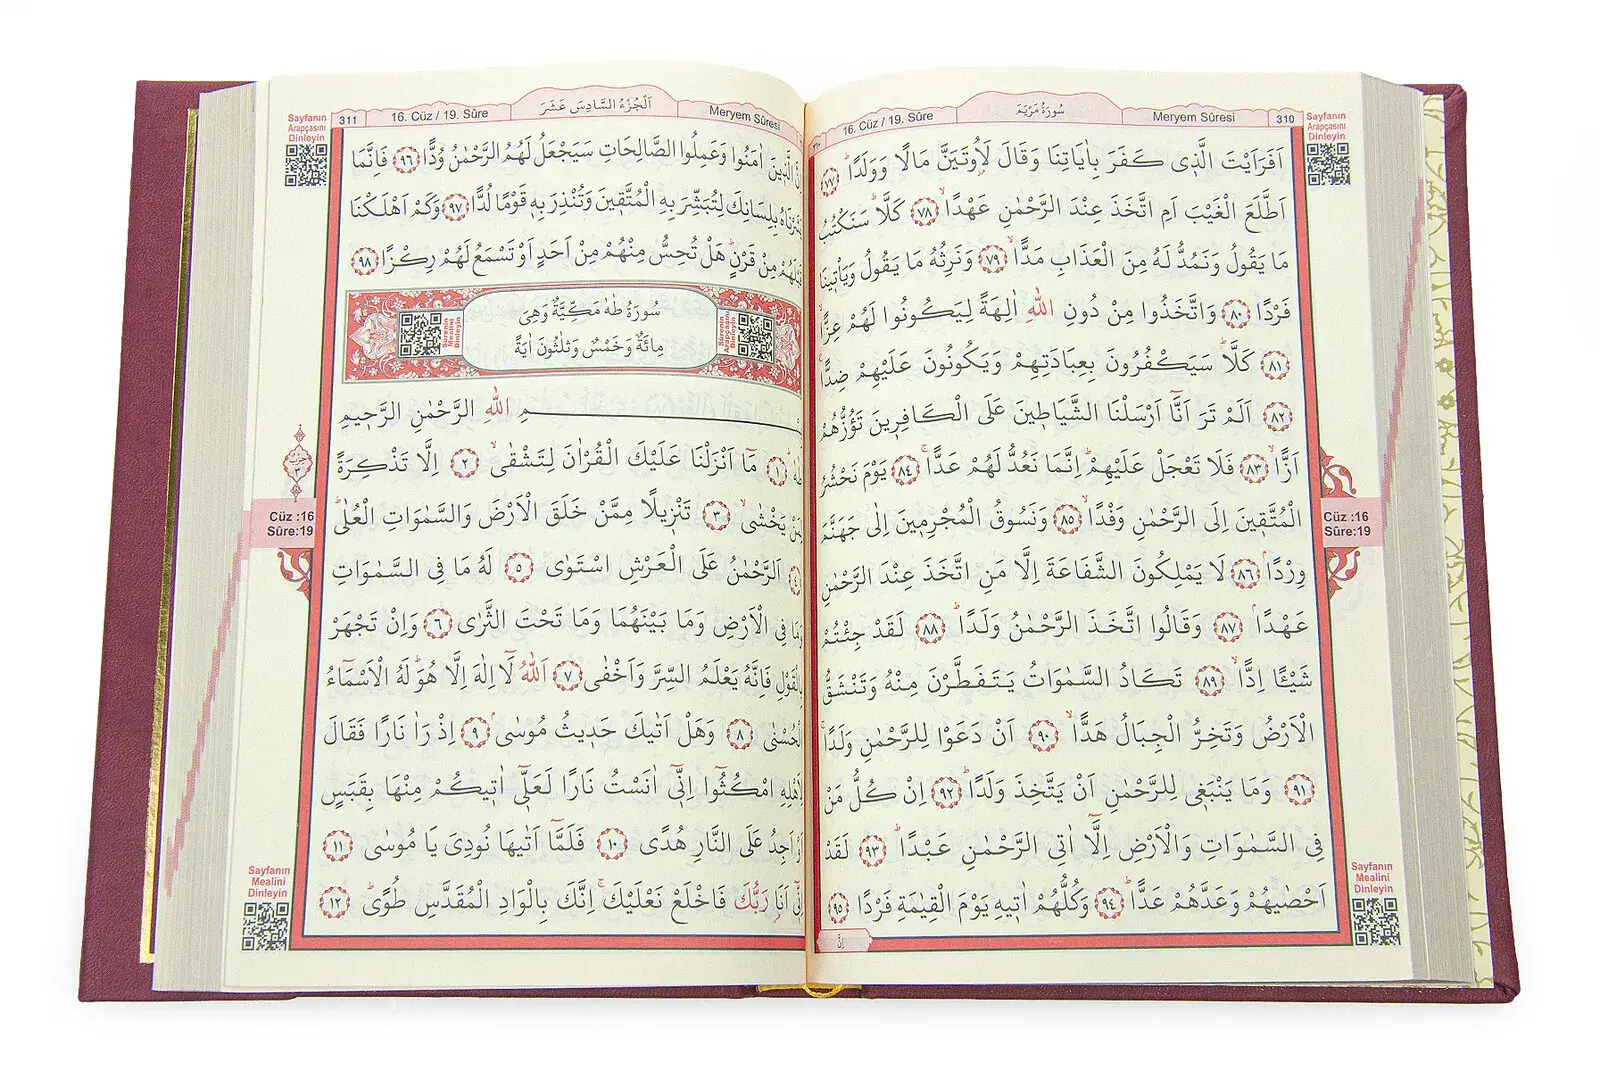 Sayfanın
Arapçasını
Dinleyin
310
Meryem Sûresi
سُورَةُ مَرْيَمَ
16. Cüz / 19. Sûre
اَفَرَاَيْتَ الَّذ۪ي كَفَرَ بِاٰيَاتِنَا وَقَالَ لَاُو۫تَيَنَّ مَالًا وَوَلَدًاۜ ﴿٧٧﴾
اَطَّلَعَ الْغَيْبَ اَمِ اتَّخَذَ عِنْدَ الرَّحْمٰنِ عَهْدًاۙ ﴿٧٨﴾ كَلَّاۜ سَنَكْتُبُ
مَا يَقُولُ وَنَمُدُّ لَهُ مِنَ الْعَذَابِ مَدًّاۙ ﴿٧٩﴾ وَنَرِثُهُ مَا يَقُولُ وَيَأْت۪ينَا
فَرْدًا ﴿٨٠﴾ وَاتَّخَذُوا مِنْ دُونِ اللّٰهِ اٰلِهَةً لِيَكُونُوا لَهُمْ عِزًّاۙ
﴿٨١﴾ كَلَّاۜ سَيَكْفُرُونَ بِعِبَادَتِهِمْ وَيَكُونُونَ عَلَيْهِمْ ضِدًّا۟
﴿٨٢﴾ اَلَمْ تَرَ اَنَّٓا اَرْسَلْنَا الشَّيَاط۪ينَ عَلَى الْكَافِر۪ينَ تَؤُزُّهُمْ
اَزًّاۙ ﴿٨٣﴾ فَلَا تَعْجَلْ عَلَيْهِمْۜ اِنَّمَا نَعُدُّ لَهُمْ عَدًّاۚ ﴿٨٤﴾ يَوْمَ نَحْشُرُ
الْمُتَّق۪ينَ اِلَى الرَّحْمٰنِ وَفْدًاۙ ﴿٨٥﴾ وَنَسُوقُ الْمُجْرِم۪ينَ اِلٰى جَهَنَّمَ
وِرْدًاۢ ﴿٨٦﴾ لَا يَمْلِكُونَ الشَّفَاعَةَ اِلَّا مَنِ اتَّخَذَ عِنْدَ الرَّحْمٰنِ
عَهْدًاۢ ﴿٨٧﴾ وَقَالُوا اتَّخَذَ الرَّحْمٰنُ وَلَدًاۜ ﴿٨٨﴾ لَقَدْ جِئْتُمْ
شَيْـًٔا اِدًّاۙ ﴿٨٩﴾ تَكَادُ السَّمٰوَاتُ يَتَفَطَّرْنَ مِنْهُ وَتَنْشَقُّ
الْاَرْضُ وَتَخِرُّ الْجِبَالُ هَدًّاۙ ﴿٩٠﴾ اَنْ دَعَوْا لِلرَّحْمٰنِ وَلَدًاۚ
﴿٩١﴾ وَمَا يَنْبَغ۪ي لِلرَّحْمٰنِ اَنْ يَتَّخِذَ وَلَدًاۜ ﴿٩٢﴾ اِنْ كُلُّ مَنْ
فِي السَّمٰوَاتِ وَالْاَرْضِ اِلَّٓا اٰتِي الرَّحْمٰنِ عَبْدًاۜ ﴿٩٣﴾ لَقَدْ
اَحْصٰيهُمْ وَعَدَّهُمْ عَدًّاۜ ﴿٩٤﴾ وَكُلُّهُمْ اٰت۪يهِ يَوْمَ الْقِيٰمَةِ فَرْدًا ﴿٩٥﴾
اِنَّ
Cüz :16
Sûre:19
Sayfanın
Mealini
Dinleyin
Meryem Sûresi
اَلْجُزْءُ السَّادِسَ عَشَرَ
16. Cüz / 19. Sûre
311
Sayfanın
Arapçasını
Dinleyin
الَّذ۪ينَ اٰمَنُوا وَعَمِلُوا الصَّالِحَاتِ سَيَجْعَلُ لَهُمُ الرَّحْمٰنُ وُدًّا ﴿٩٦﴾ فَاِنَّمَا
بِلِسَانِكَ لِتُبَشِّرَ بِهِ الْمُتَّق۪ينَ وَتُنْذِرَ بِه۪ قَوْمًا لُدًّا ﴿٩٧﴾ وَكَمْ اَهْلَكْنَا
مِنْ قَرْنٍۜ هَلْ تُحِسُّ مِنْهُمْ مِنْ اَحَدٍ اَوْ تَسْمَعُ لَهُمْ رِكْزًا ﴿٩٨﴾
سُورَةُ طٰهٰ مَكِّيَّةٌ وَهِيَ
مِائَةٌ وَخَمْسٌ وَثَلٰثُونَ اٰيَةً
Sûrenin
Arapçasını
Dinleyin
Sûrenin
Mealini
Dinleyin
اللّٰهِ الرَّحْمٰنِ الرَّح۪يمِ
﴿١﴾ مَٓا اَنْزَلْنَا عَلَيْكَ الْقُرْاٰنَ لِتَشْقٰىۙ ﴿٢﴾ اِلَّا تَذْكِرَةً
يَخْشٰىۙ ﴿٣﴾ تَنْز۪يلًا مِمَّنْ خَلَقَ الْاَرْضَ وَالسَّمٰوَاتِ الْعُلٰىۜ
﴿٤﴾ اَلرَّحْمٰنُ عَلَى الْعَرْشِ اسْتَوٰى ﴿٥﴾ لَهُ مَا فِي السَّمٰوَاتِ
وَمَا فِي الْاَرْضِ وَمَا بَيْنَهُمَا وَمَا تَحْتَ الثَّرٰى ﴿٦﴾ وَاِنْ تَجْهَرْ
بِالْقَوْلِ فَاِنَّهُ يَعْلَمُ السِّرَّ وَاَخْفٰى ﴿٧﴾ اَللّٰهُ لَٓا اِلٰهَ اِلَّا هُوَۜ لَهُ الْاَسْمَٓاءُ
الْحُسْنٰى ﴿٨﴾ وَهَلْ اَتٰيكَ حَد۪يثُ مُوسٰىۢ ﴿٩﴾ اِذْ رَاٰ نَارًا فَقَالَ
لِاَهْلِهِ امْكُثُٓوا اِنّ۪ٓي اٰنَسْتُ نَارًا لَعَلّ۪ٓي اٰت۪يكُمْ مِنْهَا بِقَبَسٍ
اَوْ اَجِدُ عَلَى النَّارِ هُدًى ﴿١٠﴾ فَلَمَّٓا اَتٰيهَا نُودِيَ يَا مُوسٰى ﴿١١﴾
اِنّ۪ٓي اَنَا۬ رَبُّكَ فَاخْلَعْ نَعْلَيْكَۚ اِنَّكَ بِالْوَادِ الْمُقَدَّسِ طُوًىۜ ﴿١٢﴾
حِزْبٌ
٣
Cüz :16
Sûre:19
Sayfanın
Mealini
Dinleyin